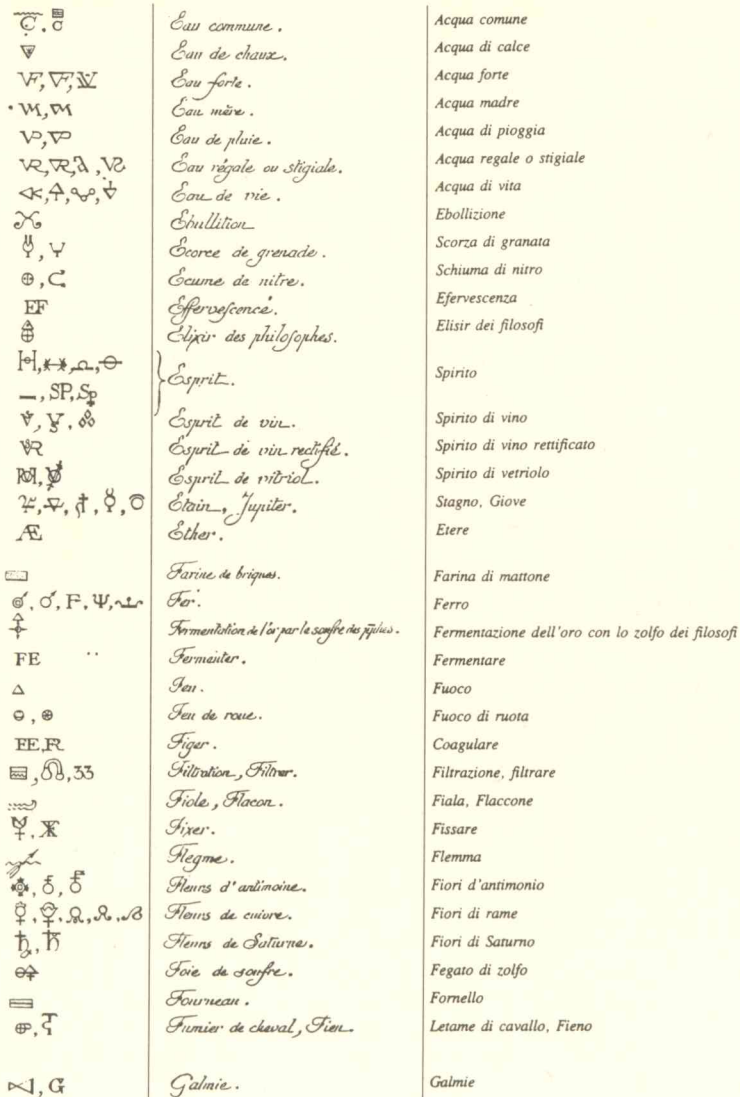 Eau commune. Acqua comune
Eau de chaux. Acqua di calce
Eau forte. Acqua forte
Eau mère. Acqua madre
Eau de pluie. Acqua di pioggia
Eau régale ou stigiale. Acqua regale o stigiale
Eau de vie. Acqua di vita
Ebullition Ebollizione
Ecorce de grenade. Scorza di granata
Ecume de nitre. Schiuma di nitro
EF Effervescence. Efervescenza
Élixir des philosophes. Elisir dei filosofi
Esprit. Spirito
SP, Sp
Esprit de vin. Spirito di vino
Esprit de vin rectifié. Spirito di vino rettificato
Esprit de vitriol. Spirito di vetriolo
Etain, Jupiter. Stagno, Giove
Æ Ether. Etere
Farine de briques. Farina di mattone
Fer. Ferro
Fermentation de l'or par le soufre des Acqua Fermentazione dell'oro con lo zolfo dei filosofi
FE Fermenter. Fermentare
Feu. Fuoco
Feu de roue. Fuoco di ruota
FE, FR Figer. Coagulare
33 Filtration, Filtrer. Filtrazione, filtrare
Fiole, Flacon. Fiala, Flaccone
Fixer. Fissare
Flegme. Flemma
Fleurs d'antimoine. Fiori d'antimonio
Fleurs de cuivre. Fiori di rame
Fleurs de Saturne. Fiori di Saturno
Foie de soufre. Fegato di zolfo
Fourneau. Fornello
Fumier de cheval, Fien. Letame di cavallo, Fieno
G Galmie. Galmie